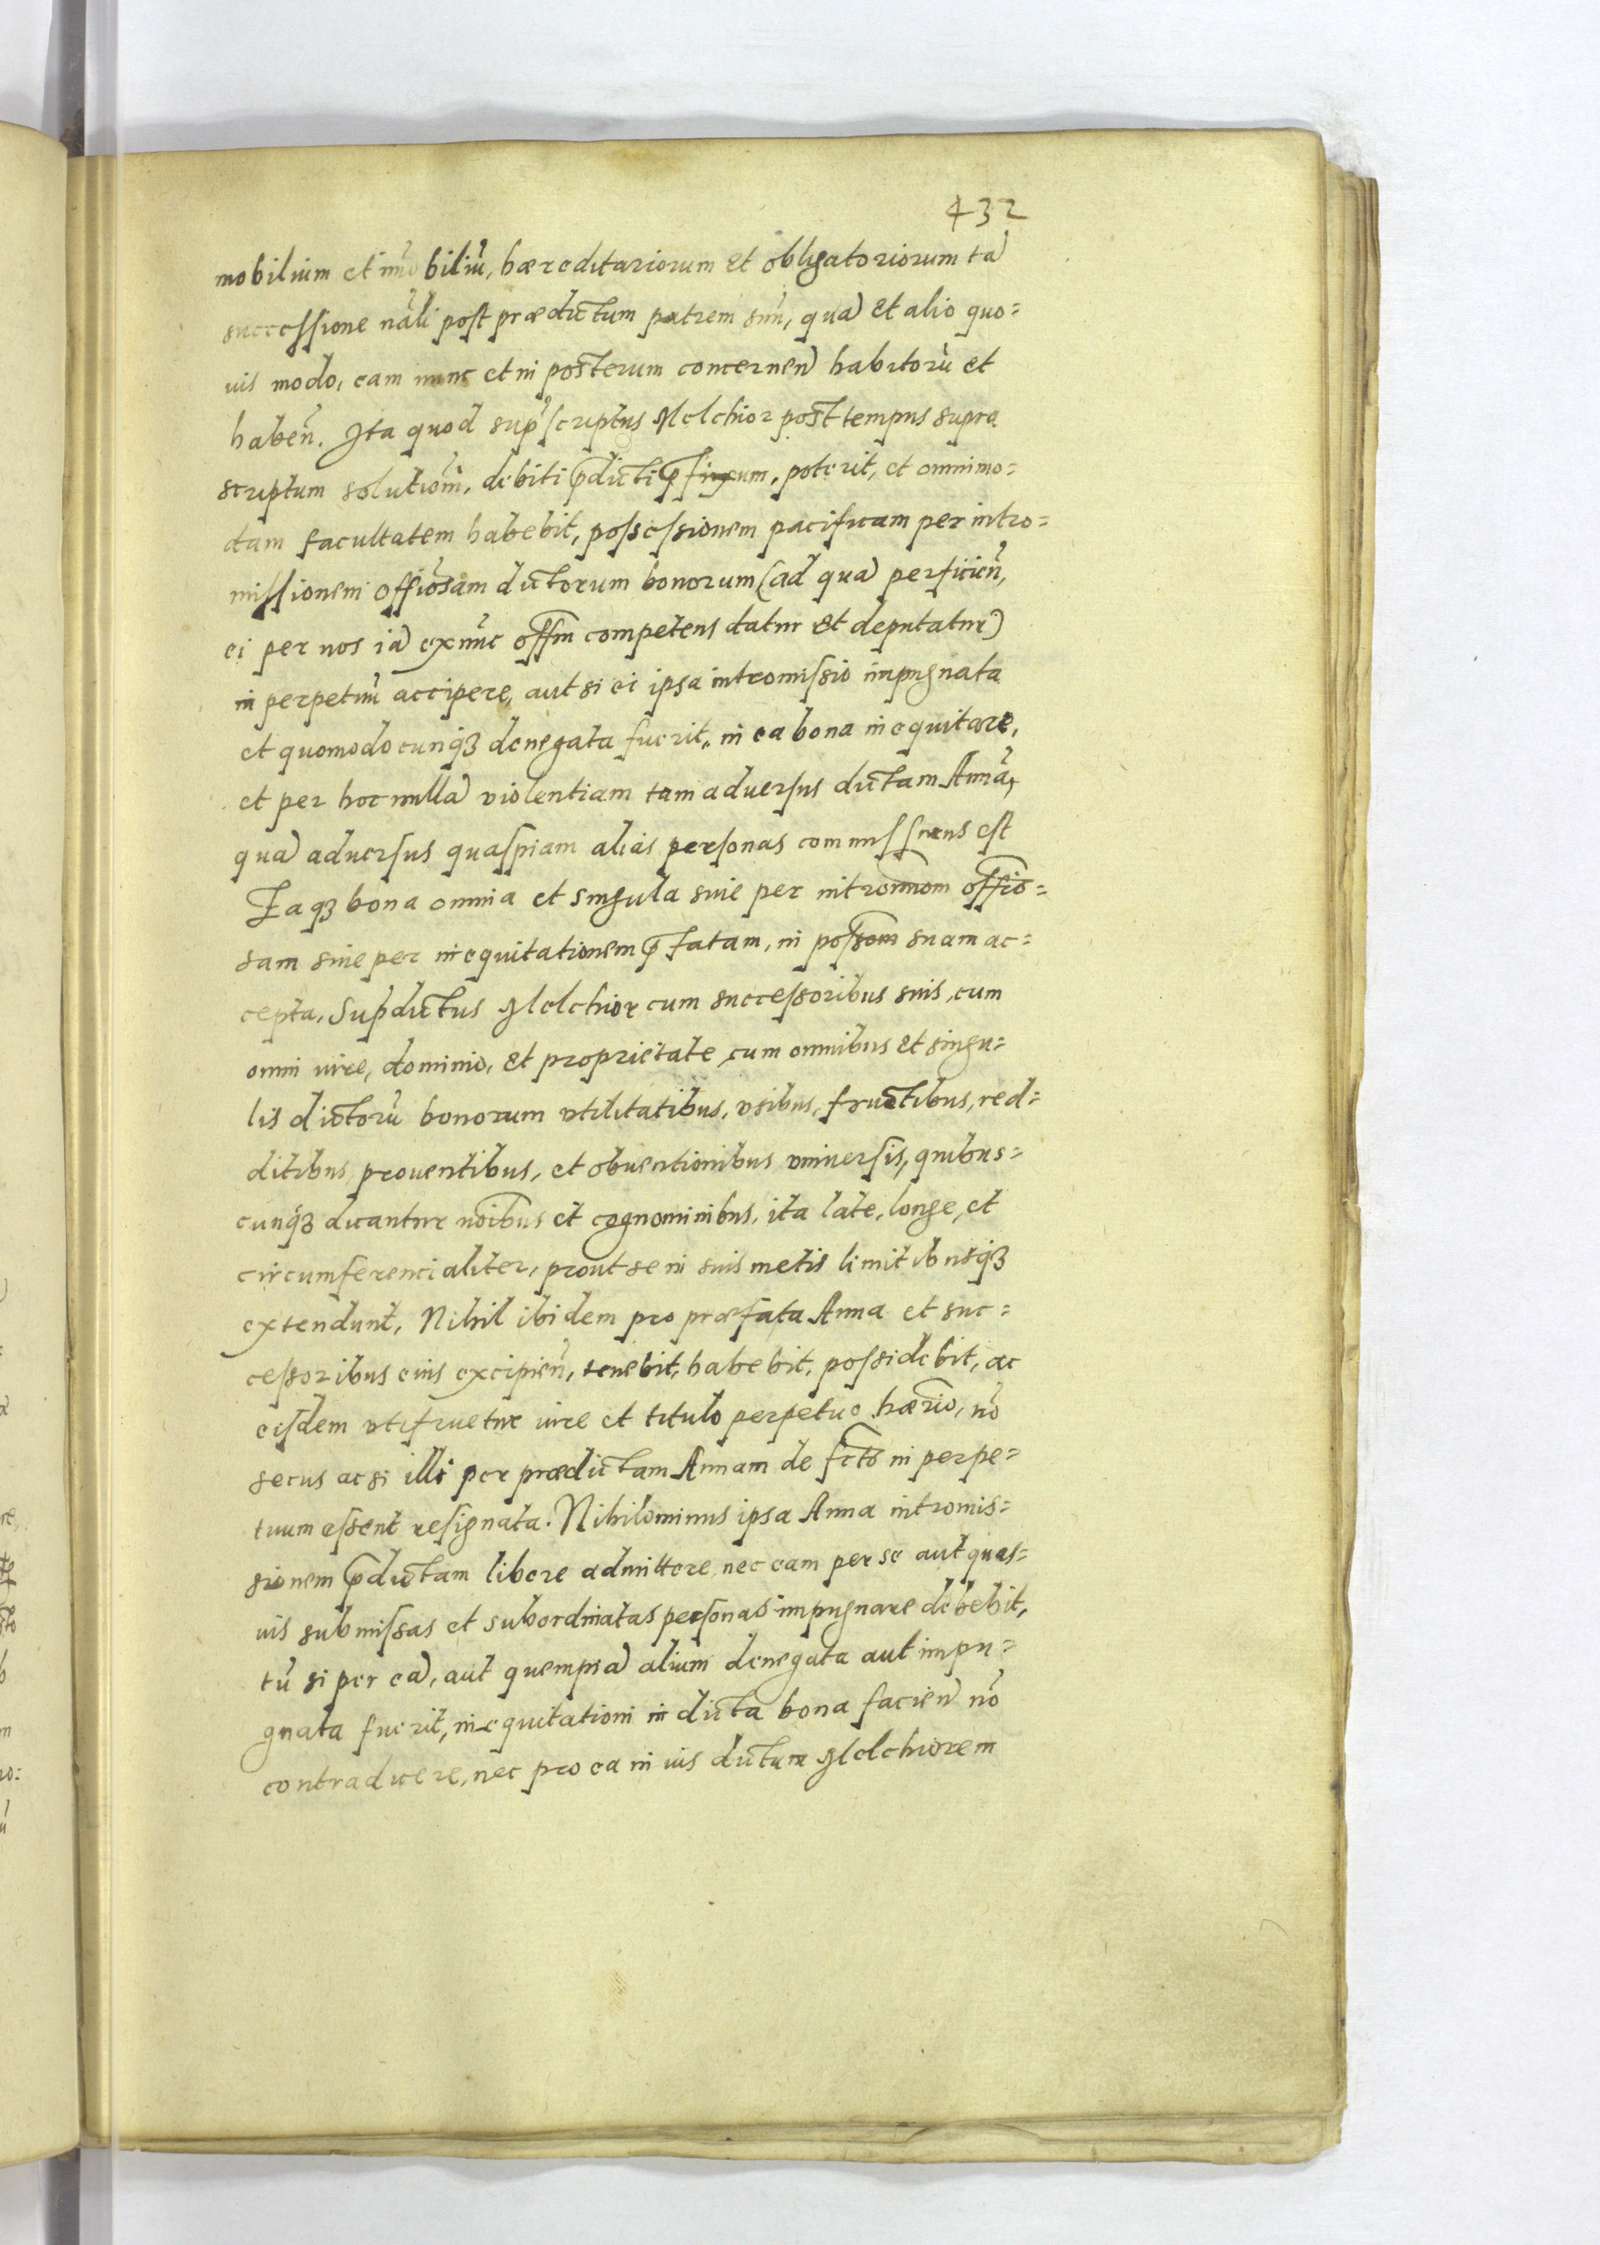 432
mobilium et im̃obiliũ, hæreditariorum et obligatoriorum ta᷈
successione nãli post prædictum patrem suũ, qua᷈ et alio quo=
uis modo, eam nunc et in posterum concernen᷈ habitorũ et
haben᷈. Ita quod sup̃scriptus Melchior post tempus supra
scriptum solutioñi, debiti p̃dicti p̃fixum, poterit, et omnimo=
dam facultatem habebit, possessionem pacificam per intro=
missionem offiõsam dictorum bonorum (ad qua᷈ perficien᷈,
ei per nos ia᷈ exnũc offm̃ competens datur et deputatur)
in perpetuũ accipere, aut si ei ipsa intromissio impugnata
et quomodocunqꝫ denegata fuerit, in ea bona inequitare,
et per hoc nulla᷈ violentiam tam aduersus dictam Annã,
qua᷈ aduersus quaspiam alias personas commissurus est
Eaqꝫ bona omnia et singula siue per intromiõnom offiõ=
sam siue per inequitationem p̃fatam, in possõm suam ac=
cepta, Sup̃dictus Melchior cum successoribus suis, cum
omni iure, dominio, et proprietate, cum omnibus et singu=
lis dictorũ bonorum vtilitatibus, vsibus, fructibus, red=
ditibus prouentibus, et obuentionibus vniuersis, quibus=
cunqꝫ dicantur nõibus et cognominibus, ita late, longe, et
circumferencialiter, prout se in suis metis limitibusqꝫ
extendunt, Nihil ibidem pro præfata Anna et suc=
cessoribus eius excipien᷈, tenebit, habebit, possidebit, ac
eisdem vtifruetur iure et titulo perpetuo hærio᷈, nõ
secus ac si illi per prædictam Annam de fctõ in perpe=
tuum essent resignata. Nihilominus ipsa Anna intromis=
sionem p̃dictam libere admittere nec eam per se aut quas=
uis submissas et subordinatas personas impugnare debebit,
tũ si per ea᷈, aut quempia᷈ alium denegata aut impu=
gnata fuerit, inequitationi in dicta bona facien᷈ nõ
contradicere, nec pro ea in ius dictum Melchiorem